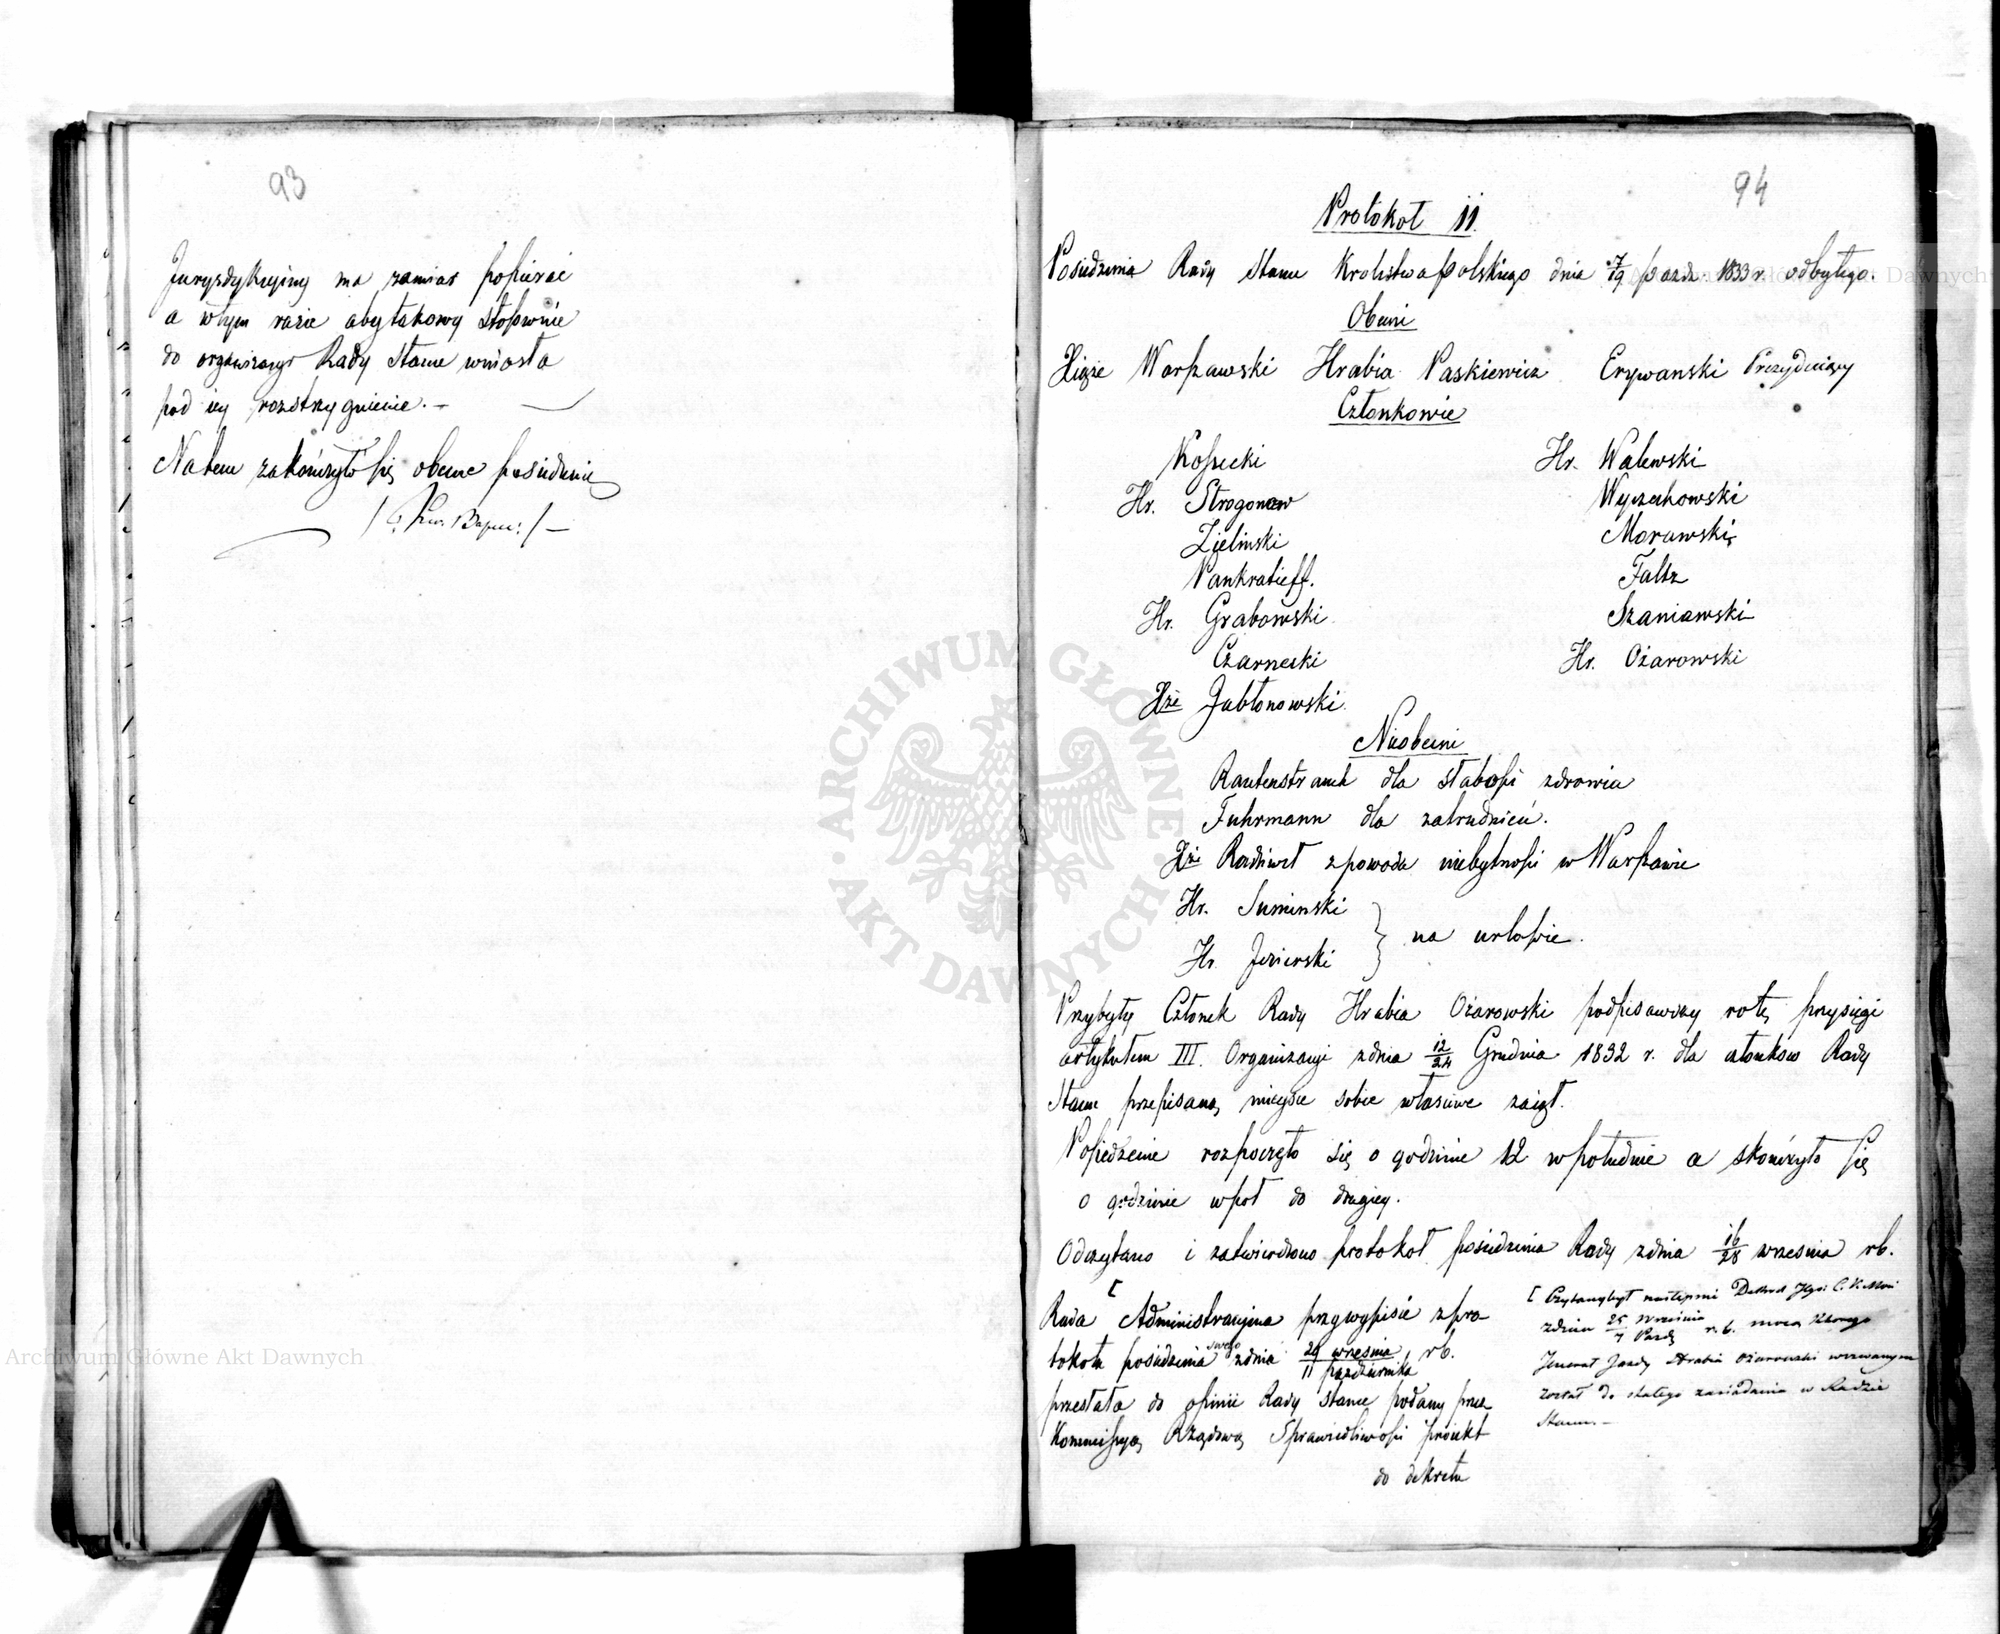 93
Jurysdykcyiny ma zamiar popierać
a wtym razie aby takowy stosownie
do organizacyi Rady Stanu wniosła
pod iey rozstrzygnienie. –
Natem zakończyło się obecne posiedzenie
94
Protokół 11.
Posiedzenia Rady Stanu Krolestwa polskiego dnia 7/19 pazdz. 1833 r. odbytego.
Obecni
Xiąże Warszawski Hrabia Paskiewicz Erywanski Prezyduiący
Członkowie
Kossecki
Hr. Strogonow
Zieliński
Pankratieff.
Hr. Grabowski
Czarnecki
Xże Jabłonowski.
Hr. Walewski
Wyczechowski
Morawski
Faltz
Szaniawski
Hr. Ożarowski
Nieobecni
Rautenstrauch dla słabości zdrowia
Fuhrmann dla zatrudnień.
Xże Radziwił z powodu niebytności w Warszawie
Hr. Sumiński
Hr. Jezierski
na urlopie.
Przybyły Członek Rady Hrabia Ożarowski podpisawszy rotę przysięgi
artykułem III. Organizacyi z dnia 12/24 Grudnia 1832 r. dla członków Rady
Stanu przepisaną mieysce sobie własciwe zaiął.
Posiedzenie rozpoczęło się o godzinie 12 wpołudnie a skończyło się
o godzinie wpół do drugiey.
Odczytano i zatwierdzono protokół posiedzenia Rady zdnia 16/28 wrzesnia rb.
[
Rada Administracyina przy wypisie z pro-
tokołu posiedzenia swego zdnia 29 wrzesnia/11 pazdziernika rb.
przesłała do opinii Rady Stanu podany przez
Kommissyą Rządową Sprawiedliwości proiekt
do dekretu
[ Czytany był następnie Dekret Jego C. K. Mości
zdnia 25 Września/7 Pazdz r. b. mocą którego
Jenerał Jazdy Hrabia Ożarowski wezwanym
został do stałego zasiadania w Radzie
Stanu. –
Archiwum Główne Akt Dawnych
ARCHIWUM GŁÓWNE AKT DAWNYCH